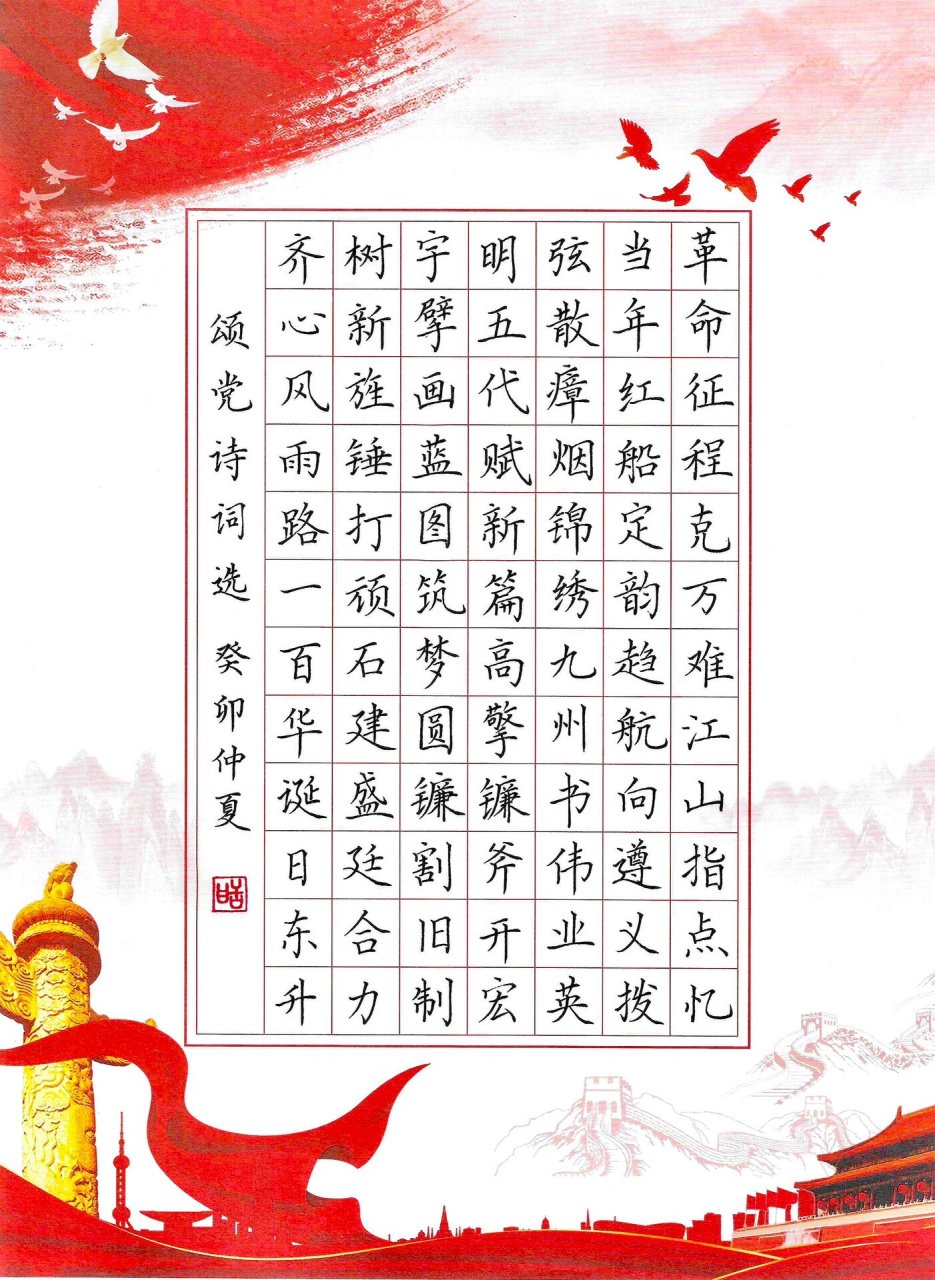 革命征程克万难江山指点忆
当年红船定韵趋航向遵义拨
弦散瘴烟锦绣九州书伟业英
明五代赋新篇高擎镰斧开宏
宇擘画蓝图筑梦圆镰割旧制
树新旌锤打顽石建盛廷合力
齐心风雨路一百华诞日东升
颂党诗词选 癸卯仲夏